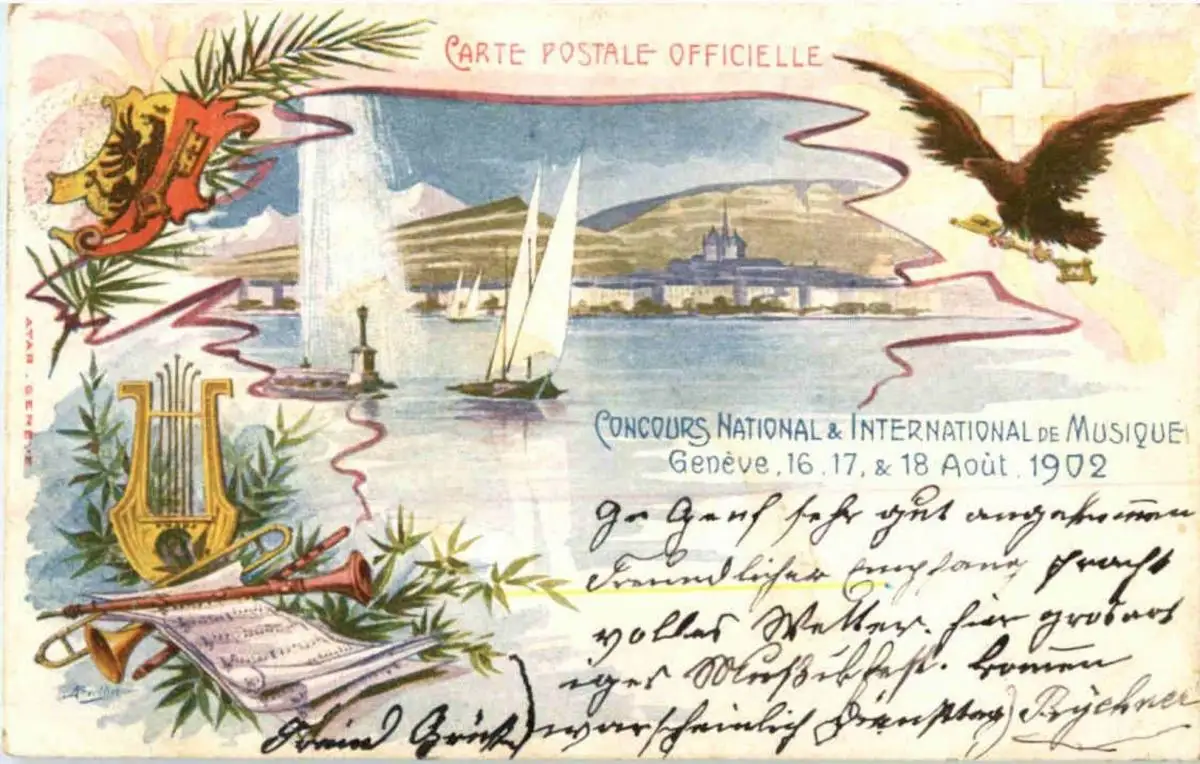 CARTE POSTALE OFFICIELLE
ATAR. GENÈVE
CONCOURS NATIONAL & INTERNATIONAL DE MUSIQUE
Genève, 16. 17, & 18 Août. 1902
Genf sehr gut angekommen
Freundlicher Empfang pracht
volles Wetter. hier grosart
iges Mußikfest. komen
warscheinlich Dienstag) Rychner
Grüß